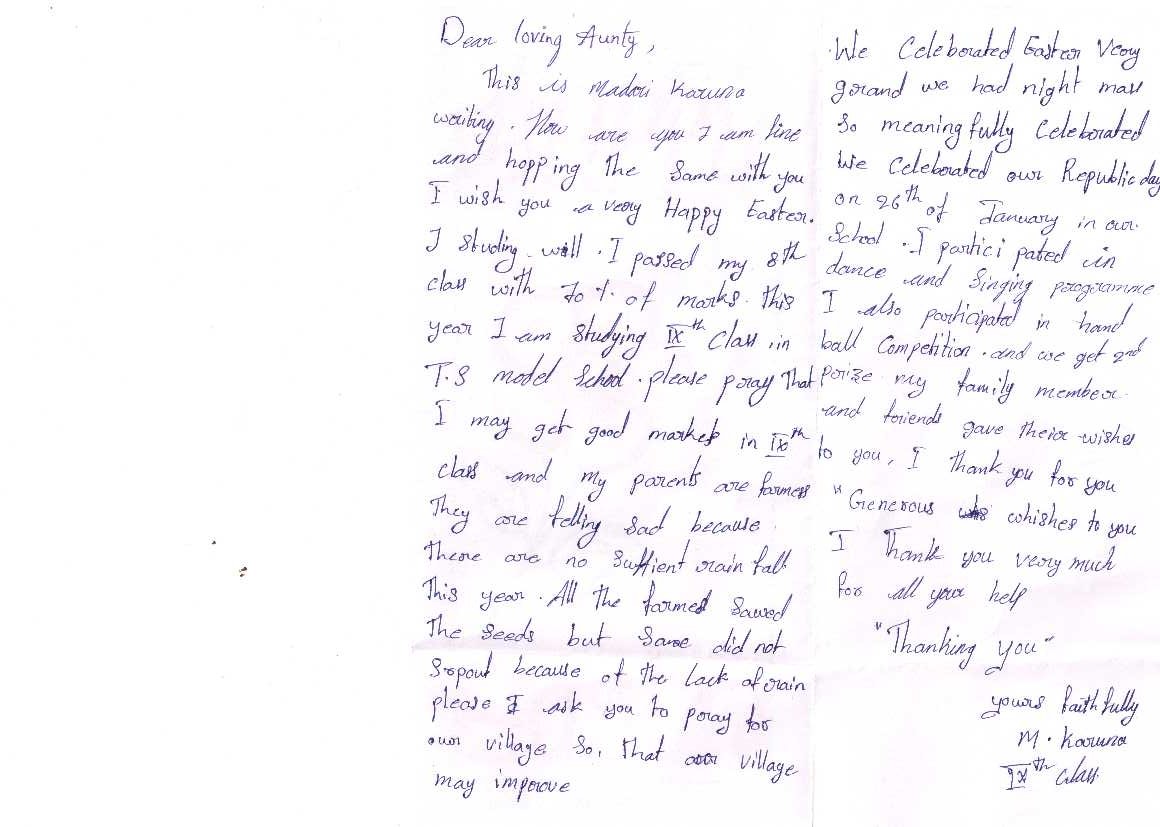 Dear loving Aunty,
This is Madari Karuna
writing. How are you I am fine
and hopping the same with you
I wish you a very Happy Easter.
I Studing well. I passed my 8th
class with 70 %. of marks. this
year I am studying IXth Class in
T.S model School. please pray that
I may get good markes in IXth
class and my parents are farmers
They are felling sad because
there are no suffient rain fall
This year. All the farmed sawed
the seeds but same did not
Sropout because of the lack of rain
please I ask you to pray for
our village So, that our village
may improve
We Celeborated Easter Very
grand we had night mass
So meaningfully Celeborated
We Celeborated our Republic day
on 26th of January in our
School. I partici pated in
dance and Singing programme
I also participated in hand
ball Competition. and we get 2nd
prize my family member
and friends gave their wishes
to you, I thank you for you
"Generous whishes to you
I Thank you very much
for all your help
"Thanking you"
yours faithfully
M. Karuna
IXth Class.